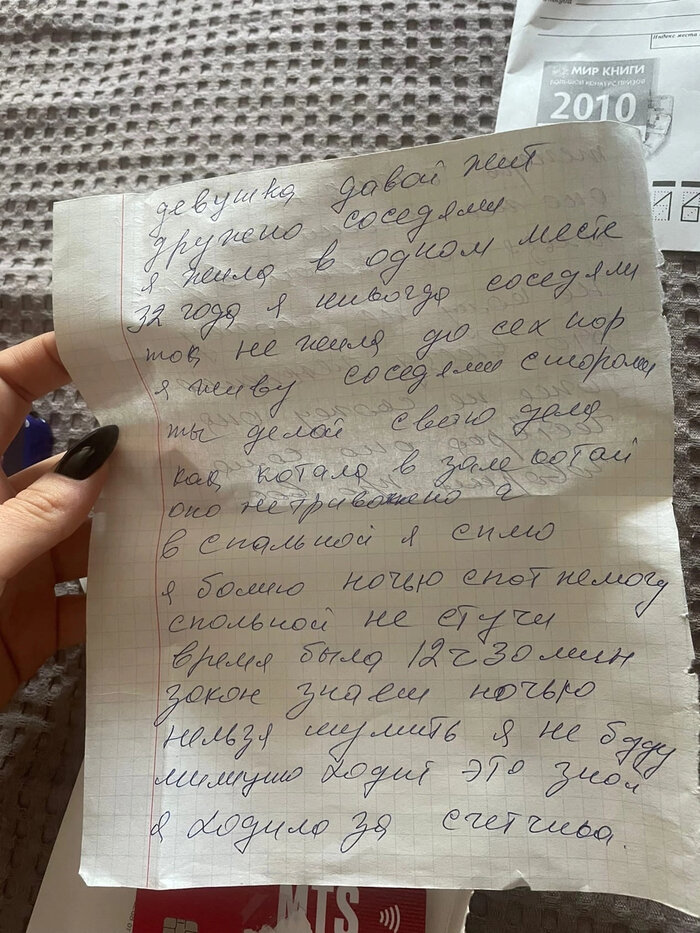 Индекс места
МИР КНИГИ
БОЛЬШОЙ КОНКУРС ПРИЗОВ
2010
девушка давай жит
дружено соседями
я жила в одном месте
32 года я никогда соседями
так не жила до сех пор
я живу соседями
ты делай свею дела
как котала в зале ботай
оно нетривожено я
в спальной я сплю
я болию ночью спот немогу
спольной не стучи
время была 12ч30мин
закон знаеш ночью
нельзя шумить я не буду
ходит это знал
я ходила за счетчика.
MTS